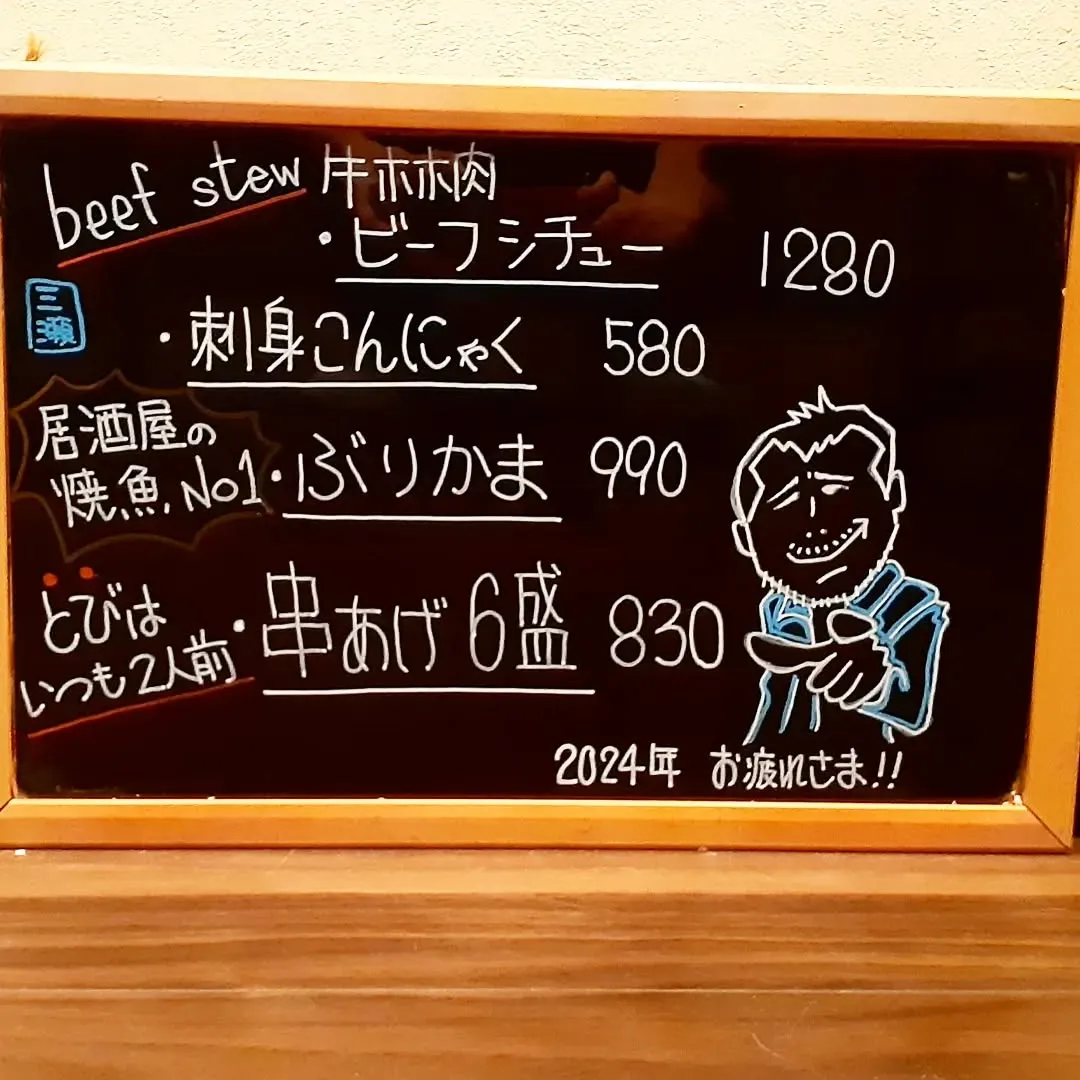 beef stew 牛ホホ肉
・ビーフシチュー 1280
三瀬
・刺身こんにゃく 580
居酒屋の
焼魚No1・ぶりかま 990
とびは
いつも2人前・串あげ6盛 830
2024年 お疲れさま!!